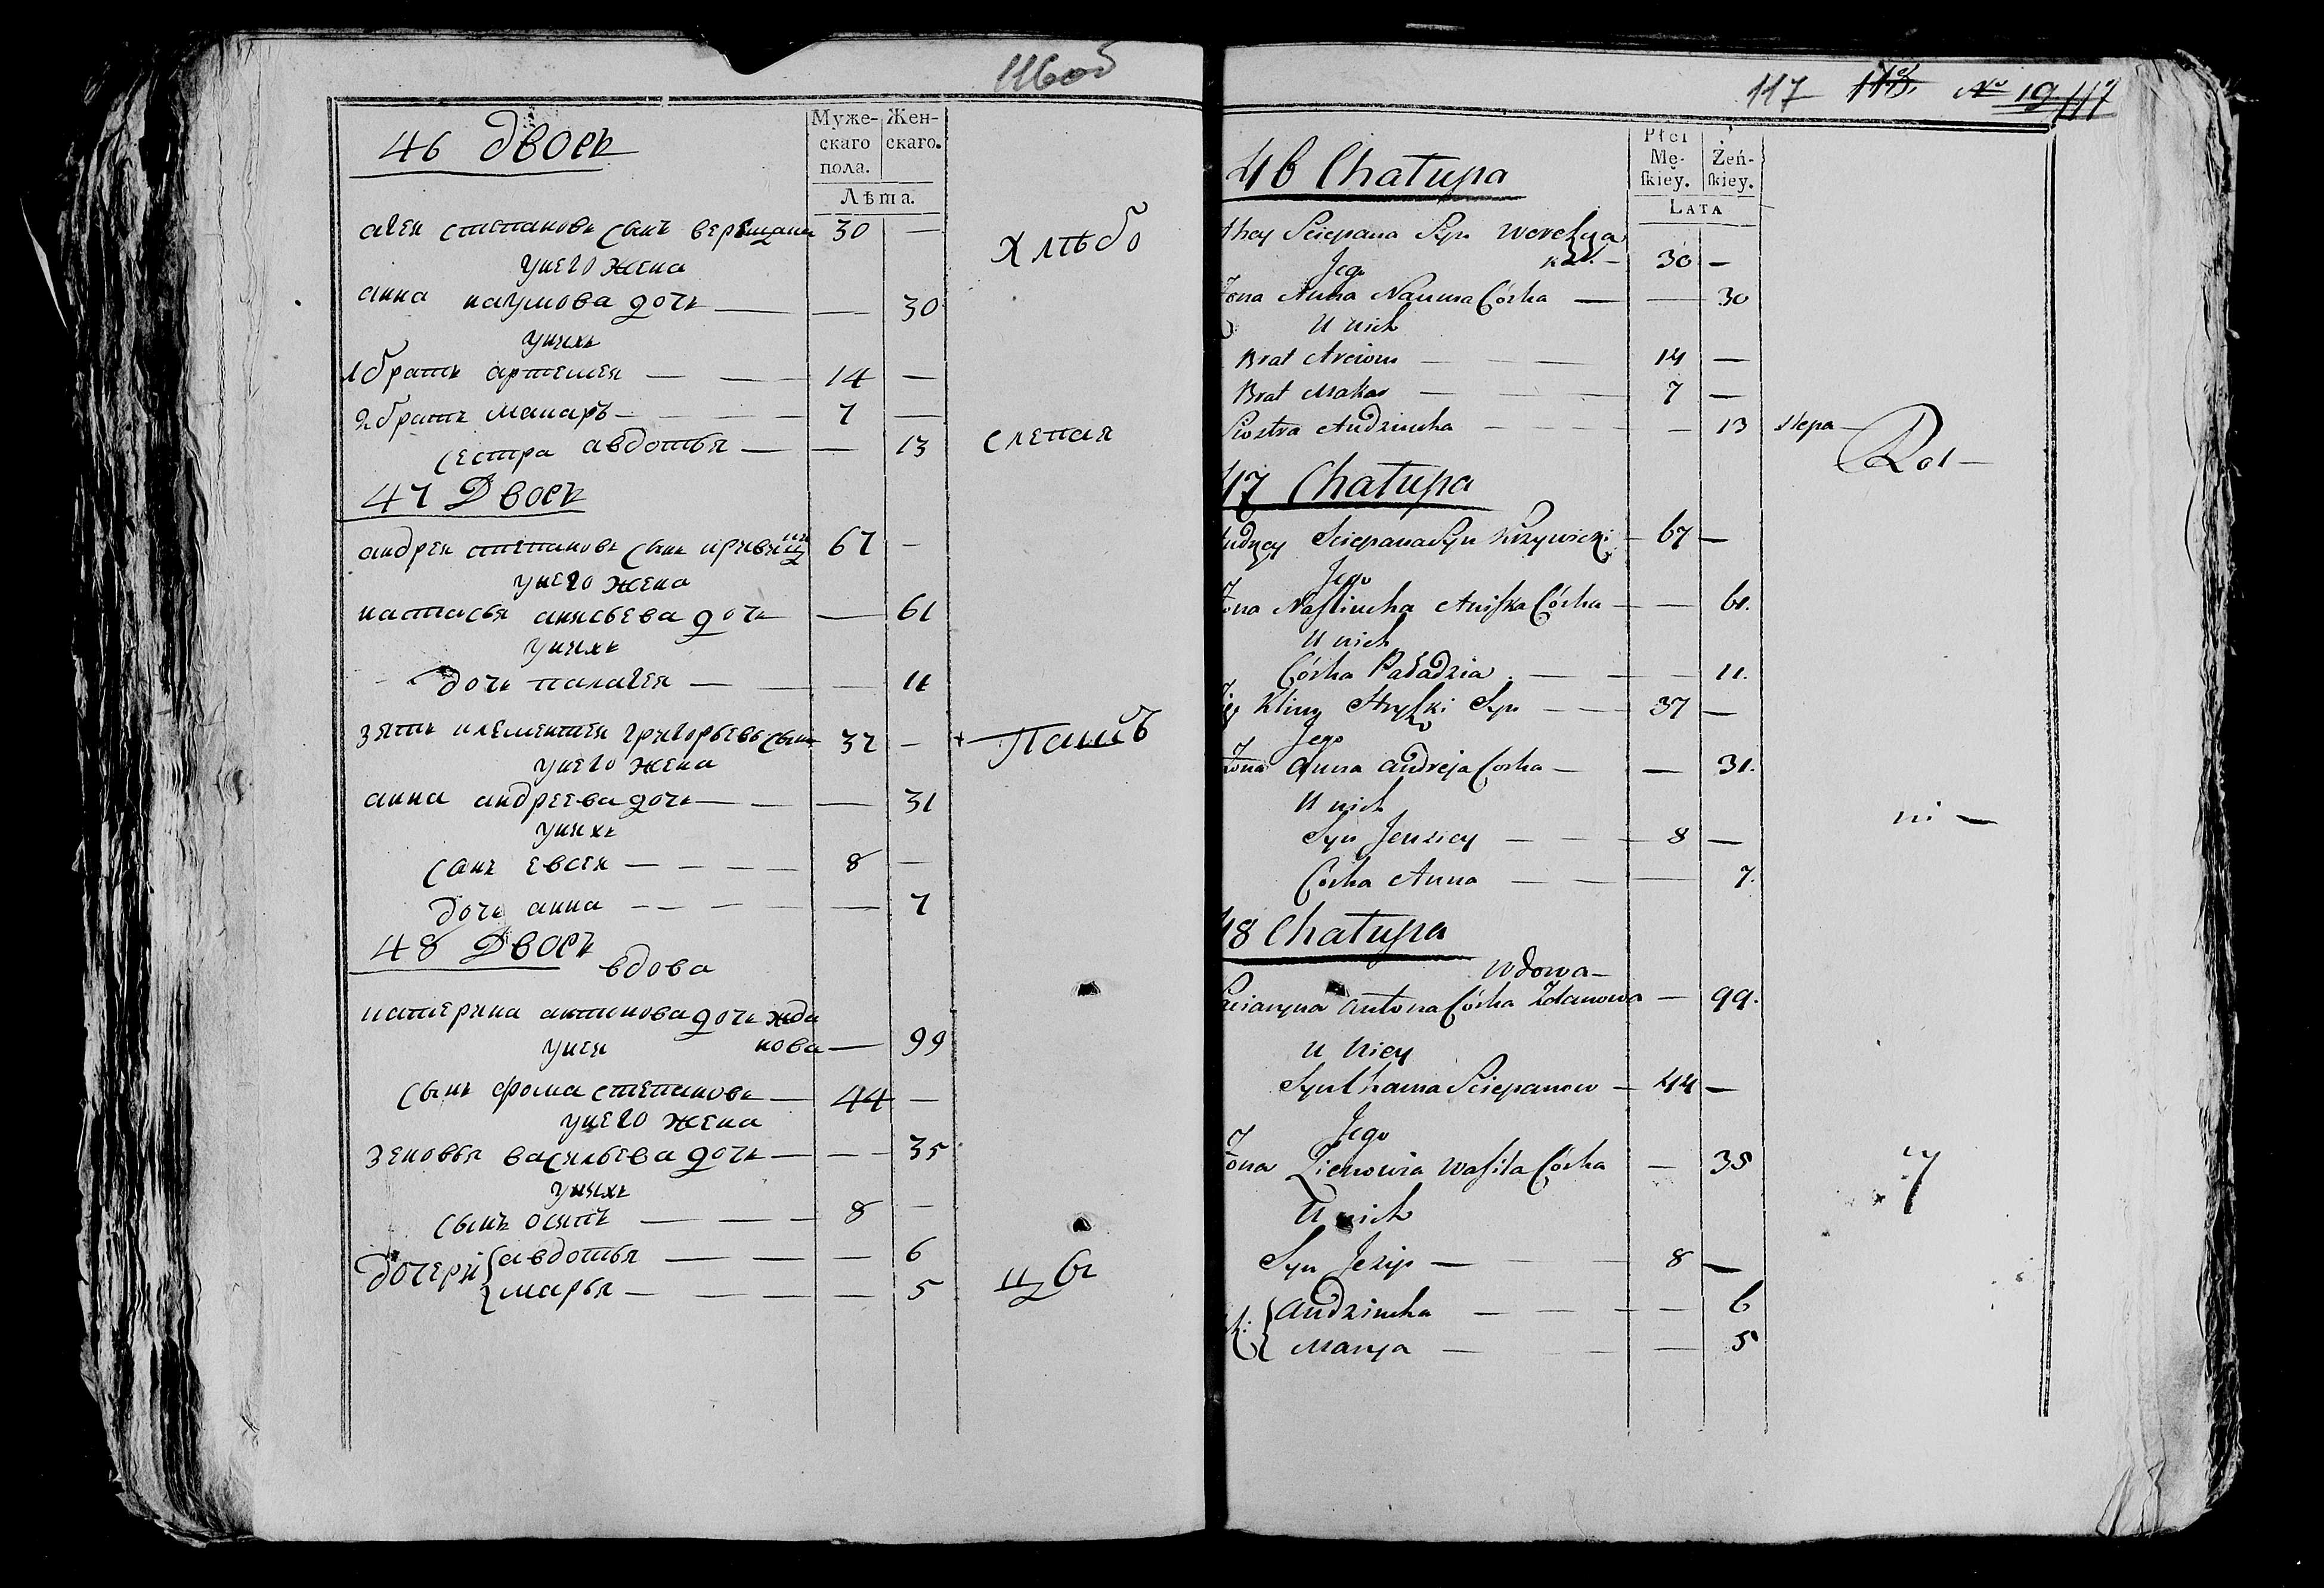 116 об
46 Дворъ
Муже-
скаго
пола.
Жен-
скаго.
Лѣта.
степановъ сынъ верещака 30 —
унего жена
анна наумова дочь — — 30
унихъ
1 братъ артемеи — — 14 —
2 братъ макаръ — — — 7 —
сестра авдотья — — 13
хлѣбо
слепая
47 Дворъ
андреи степановъ сынъ кривиц 67 —
унего жена
настасья анисьева дочь — 61
унихъ
дочь палагея — — — 11
зять клементеи григорьевъ сынъ 37 —
пашъ
унего жена
анна андреева дочь — — — 31
унихъ
сынъ евсеи — — — — 8 —
дочь анна — — — — — 7
48 Дворъ
вдова
катерина антонова дочь жда
унея нова — 99
сынъ фома степановъ — 44 —
унего жена
зеновья васильева дочь — — — 35
унихъ
сынъ осипъ — — — 8 —
дочери { авдотья — — — — 6
{ марья — — — — — 5
117 118. № 19 117
46 Chałupa
Płci
Mę-
ſkiey.
Żeń-
ſkiey.
LATA
Sciepana Syn Wereszcza
Jego ka — 30 —
Żona Anna Nauma Córka — — 30
U nich
Brat Arciom — — — 14 —
Brat Makar — — — 7 —
Siostra Audziucha — — — — 13 slepa
47 Chałupa
Andrzey Sciepana Syn Krzywicki — 67 —
Jego
Żona Nastiucha Aniska Córka — — 61.
U nich
Córka Paładzia — — — 11.
Klim Hryſzki Syn — — 37 —
Jego
Żona Anna Andreja Corka — — 31.
U nich
Syn Jeuziey — — — 8 —
Córka Anna — — — 7.
ni —
48 Chałupa
Wdowa —
Kaciaryna Antona Córka Zdanowa — 99.
U Niey
Syn Chama Sciepanow — 44 —
Jego
Żona Zienowia Wasila Córka — 35
U nich
Syn Jezip — — — 8 —
{ Audziucha — — — — 6
{ Marya — — — — 5